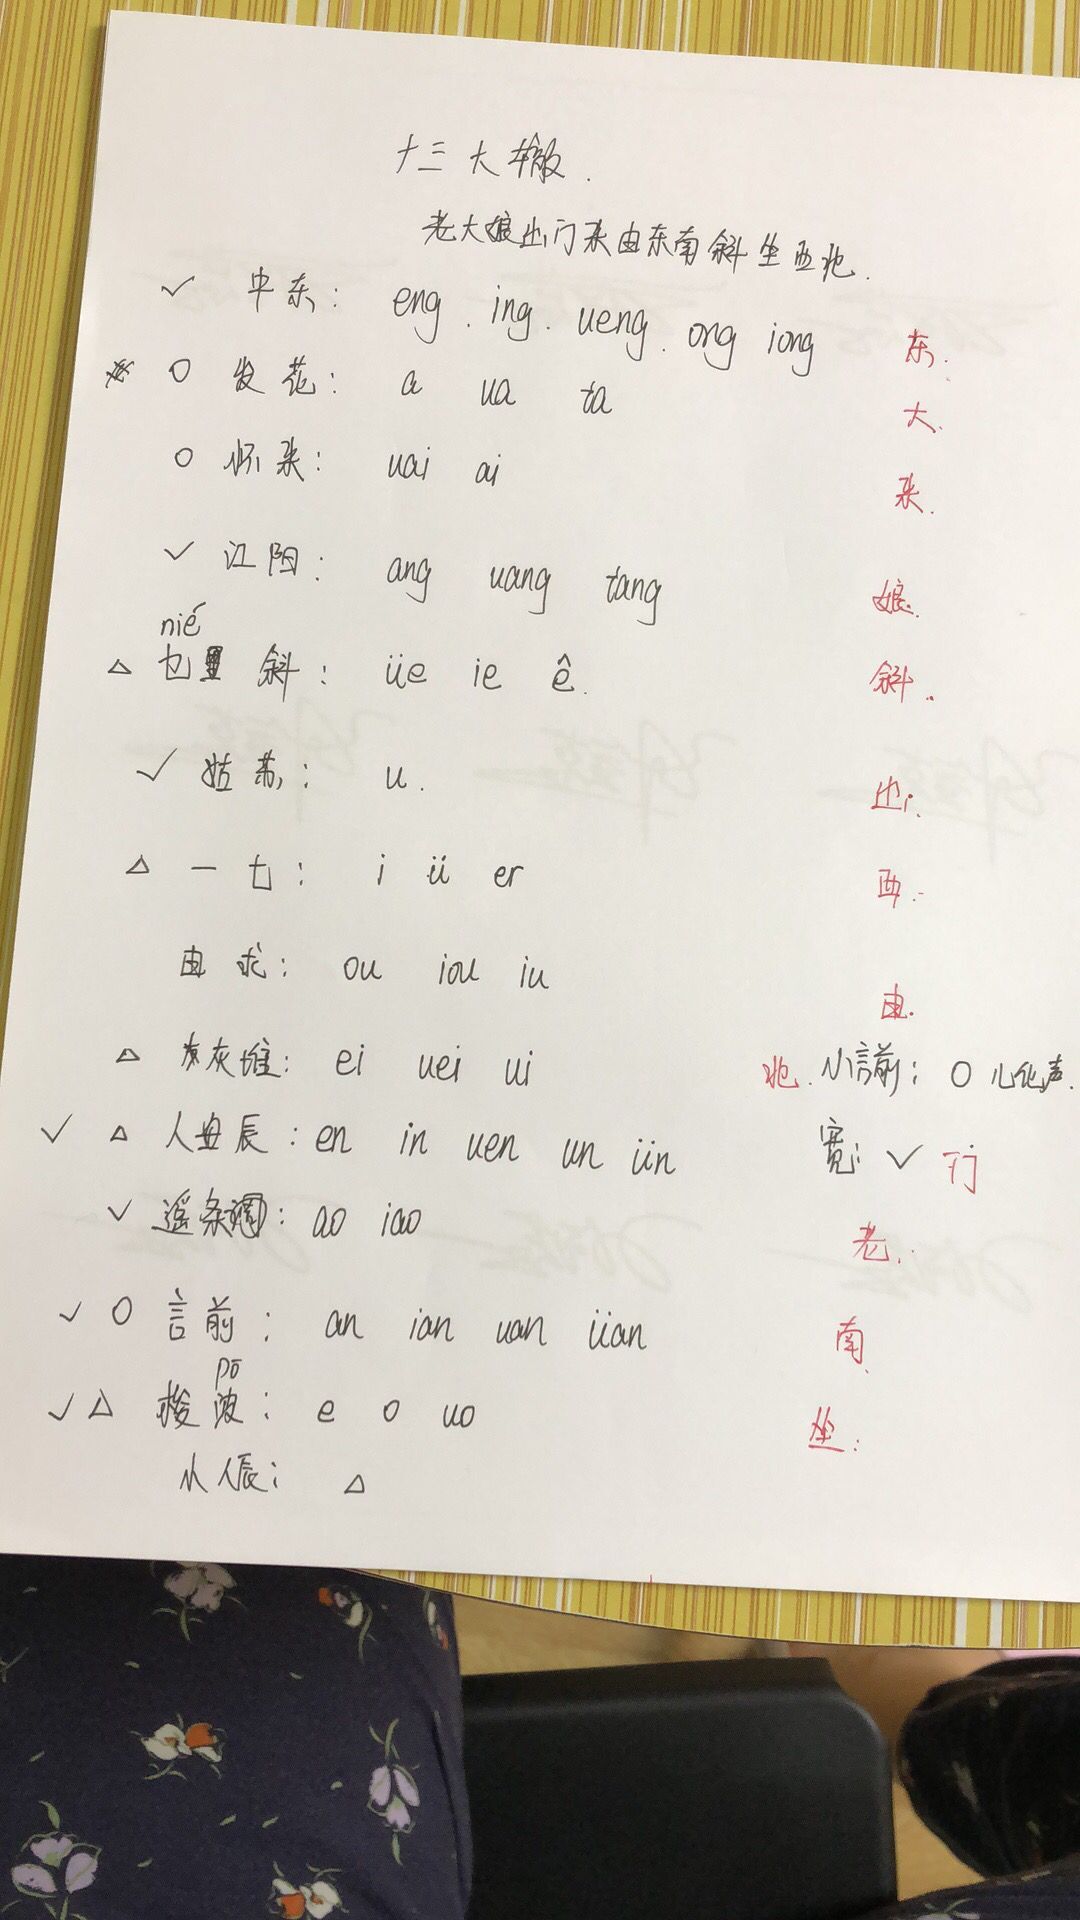 十三大辙.
老大娘出门来由东南斜坐西北.
✓ 中东: eng . ing . ueng . ong iong 东.
○ 发花: a ua ta 大.
○ 怀来: uai ai 来.
✓ 江阳: ang uang tang 娘.
nié
△ 乜 斜: üe ie ê. 斜.
✓ 姑苏: u. 出.
△ 一七: i ü er 西.
由求: ou iou iu 由.
△ 灰堆: ei uei ui 北. 小言前: ○ 儿化声.
✓ △ 人辰: en in uen un ün 宽: ✓ 门
✓ 遥条: ao iao 老.
✓ ○ 言前: an ian uan üan 南.
pō
✓ △ 梭波: e o uo 坐:
小人辰: △